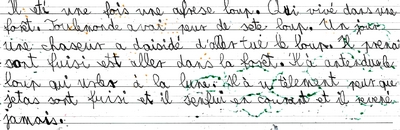 Il eti une fois une afrse loup. Qui vivé dans une
foret. Toulemonde avai peur de sete loup. Un jour
une chaseur a daisidé d'aller tué le loup. Il prenai
sont fuisi est aller dans la foret. Il a antendu le
loup qui urler à la lune. Il a u telement peur que
jetas sont fuisi et il senfui en courant et il revené
jamais.